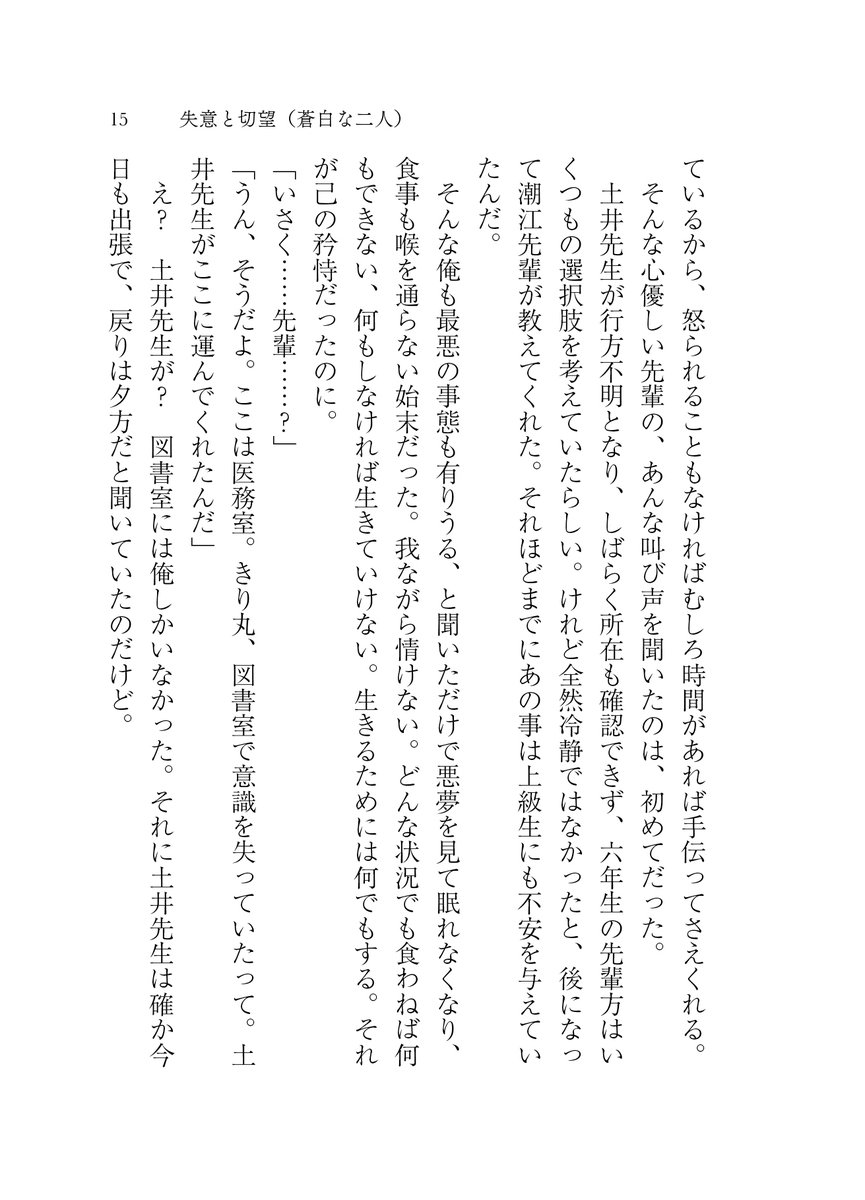 15　失意と切望（蒼白な二人）
ているから、怒られることもなければむしろ時間があれば手伝ってさえくれる。
　そんな心優しい先輩の、あんな叫び声を聞いたのは、初めてだった。
　土井先生が行方不明となり、しばらく所在も確認できず、六年生の先輩方はい
くつもの選択肢を考えていたらしい。けれど全然冷静ではなかったと、後になっ
て潮江先輩が教えてくれた。それほどまでにあの事は上級生にも不安を与えてい
たんだ。
　そんな俺も最悪の事態も有りうる、と聞いただけで悪夢を見て眠れなくなり、
食事も喉を通らない始末だった。我ながら情けない。どんな状況でも食わねば何
もできない、何もしなければ生きていけない。生きるためには何でもする。それ
が己の矜恃だったのに。
「いさく……先輩……？」
「うん、そうだよ。ここは医務室。きり丸、図書室で意識を失っていたって。土
井先生がここに運んでくれたんだ」
　え？　土井先生が？　図書室には俺しかいなかった。それに土井先生は確か今
日も出張で、戻りは夕方だと聞いていたのだけど。